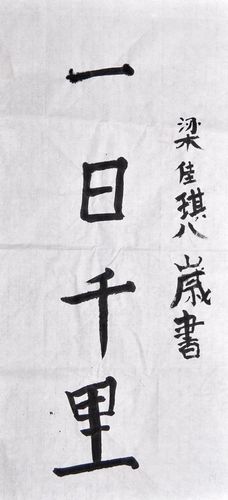 一日千里
梁佳琪八歲書